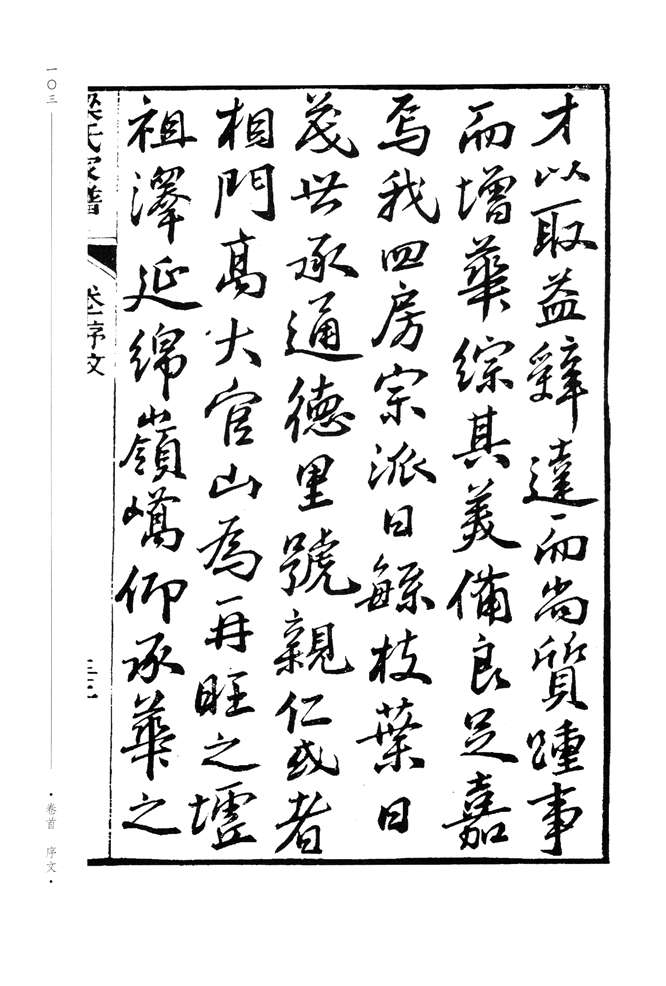 才以取益辭達而尚質踵事
而增華綜其美備良足嘉
焉我四房宗派日繇枝葉日
茂世承通德里號親仁或者
相門高大官山為再旺之墟
祖澤延綿嶺嶠仰承華之
梁氏家譜
卷一序文
三二
一〇三
·卷首 序文·